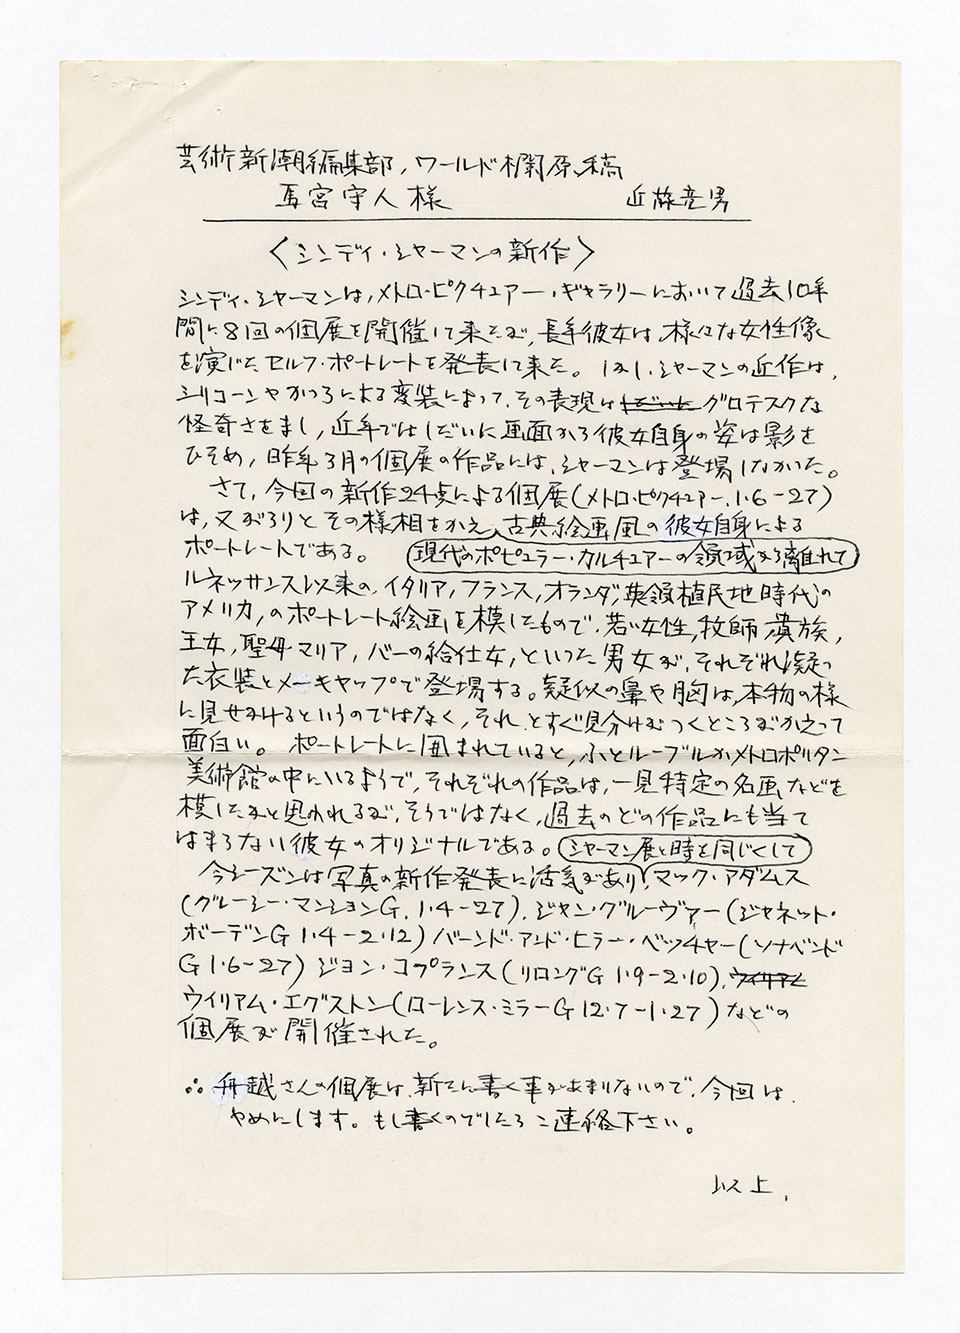 芸術新潮編集部, ワールド欄原稿
宮守人様 近藤竜男
〈シンディ・シャーマンの新作〉
シンディ・シャーマンは, メトロ・ピクチュアー・ギャラリーにおいて過去10年
間に8回の個展を開催して来たが, 長年彼女は, 様々な女性像
を演じたセルフ・ポートレートを発表して来た。しかし, シャーマンの近作は,
シリコーンやかつらによる変装によって, その表現はしだいにグロテスクな
怪奇さをまし, 近年ではしだいに画面から彼女自身の姿は影を
ひそめ, 昨年3月の個展の作品には, シャーマンは登場しなかった。
さて, 今回の新作24点による個展(メトロ・ピクチュアー, 1・6-27)
は, 又がらりとその様相をかえ, 古典絵画風の彼女自身による
ポートレートである。 現代のポピュラー・カルチュアーの領域から離れて
ルネッサンス以来の, イタリア, フランス, オランダ, 英領植民地時代の
アメリカ, のポートレート絵画を模したもので, 若い女性, 牧師, 貴族,
王女, 聖母マリア, バーの給仕女, といった男女が, それぞれ凝っ
た衣装とメーキャップで登場する。疑似の鼻や胸は, 本物の様
に見せかけるというのではなく, それとすぐ見分けがつくところがかえって
面白い。ポートレートに囲まれていると, ふとルーブルかメトロポリタン
美術館の中にいるようで, それぞれの作品は, 一見特定の名画などを
模したかと思われるが, そうではなく, 過去のどの作品にも当て
はまらない彼女のオリジナルである。 シャーマン展と時を同じくして
今シーズンは写真の新作発表に活気があり, マック・アダムス
(グレーシー・マンションG, 1・4-27), ジャン・グルーヴァー(ジャネット・
ボーデンG 1・4-2・12) バーンド・アンド・ヒラー・ベッチャー(ソナベンド
G 1・6-27) ジョン・コプランス(リロングG 1・9-2・10), ウィリアム
ウイリアム・エグストン(ローレンス・ミラーG 12・7-1・27)などの
個展が開催された。
∴ 舟越さんの個展は, 新たに書く事があまりないので, 今回は,
やめにします。もし書くのでしたらご連絡下さい。
以上,